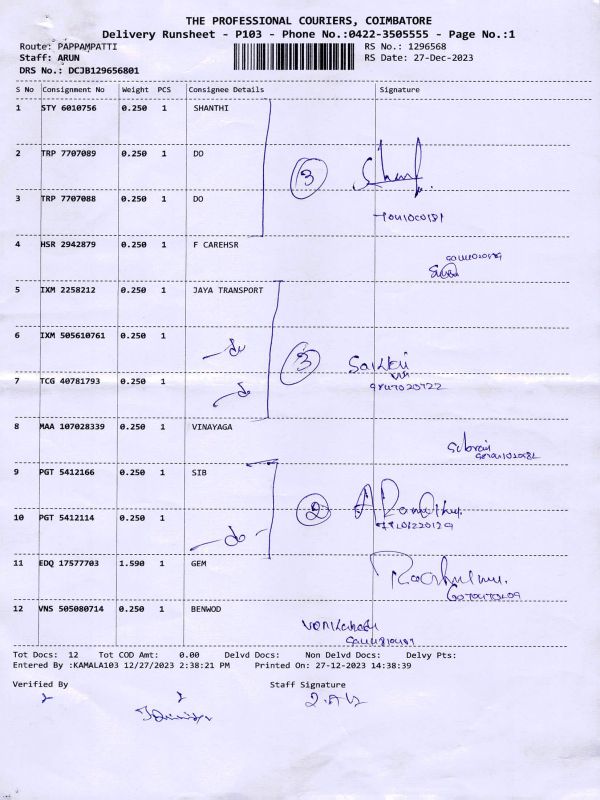 THE PROFESSIONAL COURIERS, COIMBATORE
Delivery Runsheet - P103 - Phone No.:0422-3505555 - Page No.:1
Route: PAPPAMPATTI RS No.: 1296568
Staff: ARUN RS Date: 27-Dec-2023
DRS No.: DCJB129656801
S No Consignment No Weight PCS Consignee Details Signature
1 STY 6010756 0.250 1 SHANTHI
2 TRP 7707089 0.250 1 DO
3
3 TRP 7707088 0.250 1 DO
4 HSR 2942879 0.250 1 F CAREHSR
5 IXM 2258212 0.250 1 JAYA TRANSPORT
6 IXM 505610761 0.250 1
do
3
7 TCG 40781793 0.250 1
do
8 MAA 107028339 0.250 1 VINAYAGA
9 PGT 5412166 0.250 1 SIB
2
10 PGT 5412114 0.250 1
do
11 EDQ 17577703 1.590 1 GEM
12 VNS 505080714 0.250 1 BENWOD
Tot Docs: 12 Tot COD Amt: 0.00 Delvd Docs: Non Delvd Docs: Delvy Pts:
Entered By :KAMALA103 12/27/2023 2:38:21 PM Printed On: 27-12-2023 14:38:39
Verified By Staff Signature